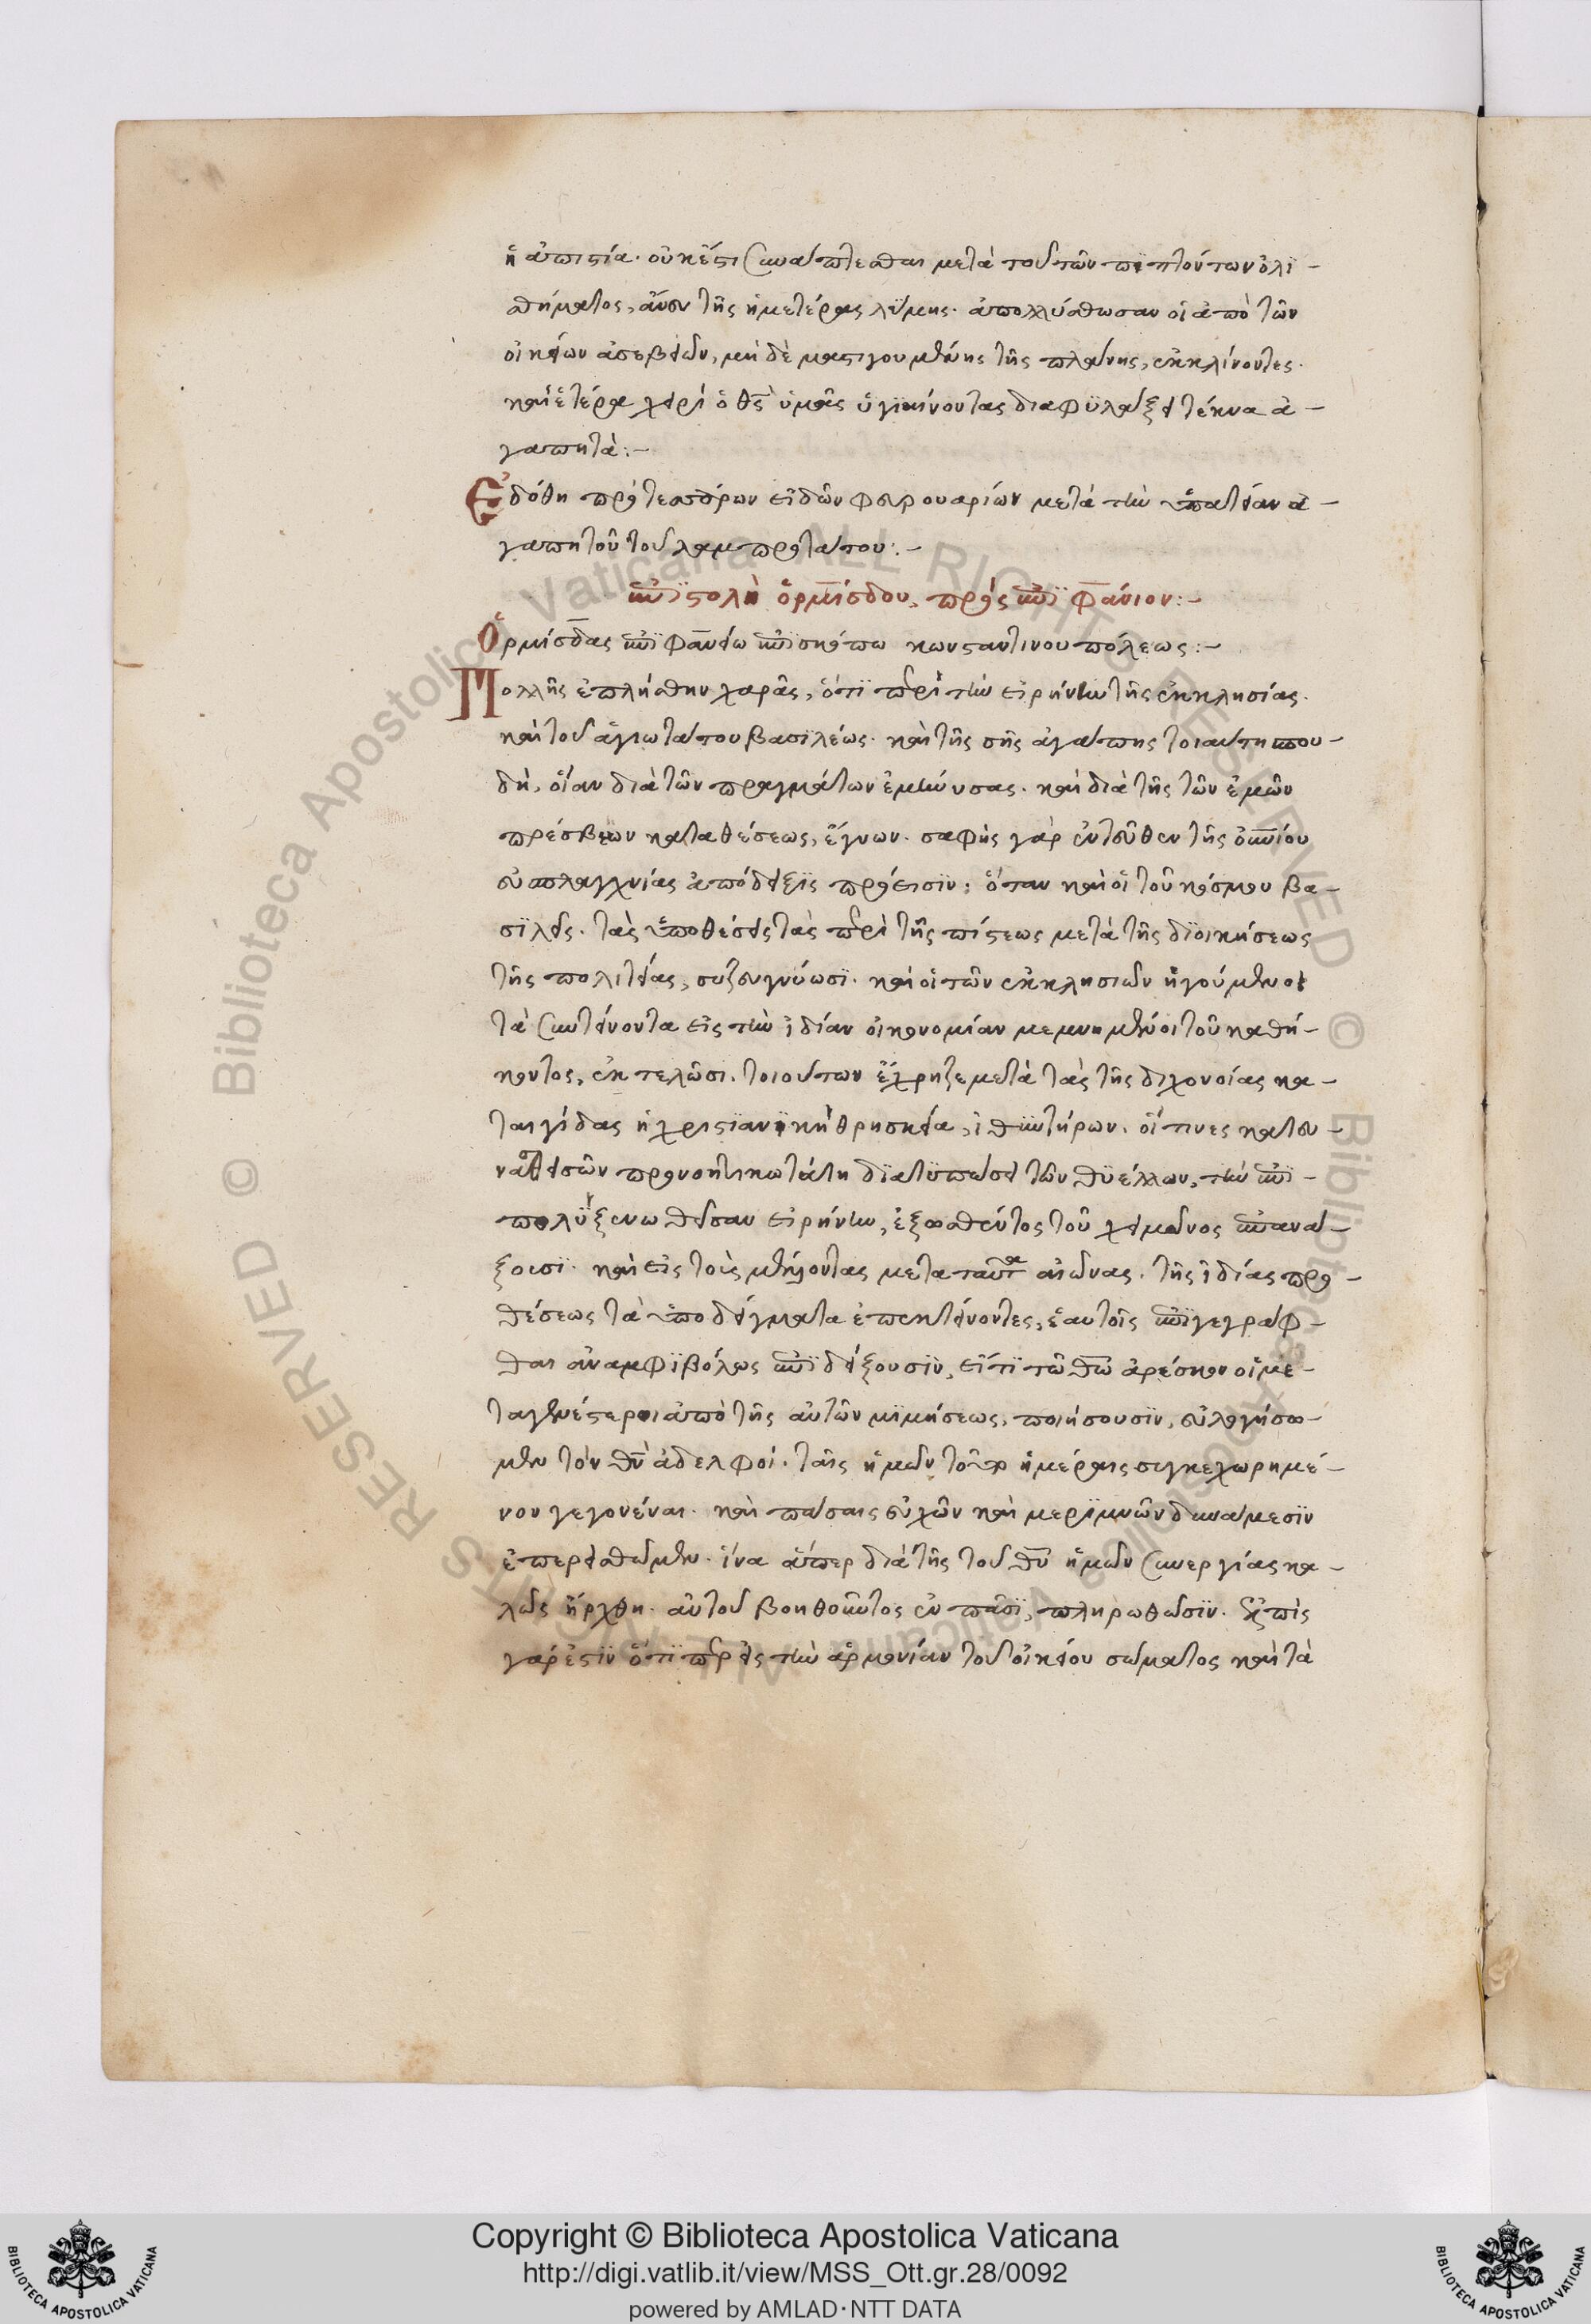 ἡ ἀπιστία. οὐκέτι συνάπτεσθαι μετὰ τοῦ τῶν πιπτόντων ὀλι-
σθήματος, ἄνευ τῆς ἡμετέρας λύμης. ἀπολλύσθωσαν οἱ ἀπὸ τῶν
οἰκείων ἀσεβειῶν, μὴ δὲ μαστιγουμένης τῆς πλάνης, ἐκκλίνοντες.
καὶ ἑτέρα χειρὶ ὁ θς ὑμᾶς ὑγιαίνοντας διαφυλάξει τέκνα ἀ-
γαπητὰ:-
Ἐδόθη πρὸ τεσσάρων εἰδῶν φευρουαρίων μετὰ τὴν ὑπατείαν ἀ-
γαπητοῦ τοῦ λαμπροτάτου:-
ἐπιστολὴ ὁρμίσδου, πρὸς ἐπιφάνιον:-
Ὁρμίσδας ἐπιφανείω ἐπισκόπω κωνσταντινουπόλεως:-
Πολλῆς ἐπλήσθην χαρᾶς, ὅτι περὶ τὴν εἰρήνην τῆς ἐκκλησίας.
καὶ τοῦ ἁγιωτάτου βασιλέως. καὶ τῆς σῆς ἀγάπης τοιαύτη σπου-
δὴ, οἵαν διὰ τῶν πραγμάτων ἐμήνυσας. καὶ διὰ τῆς τῶν ἐμῶν
πρέσβεων καταθέσεως, ἔγνων. σαφὴς γὰρ ἐντεῦθεν τῆς οὐνίου
εὐσπλαγχνίας ἀπόδειξις πρόεισιν: ὅταν καὶ οἱ τοῦ κόσμου βα-
σιλεῖς. τὰς ὑποθέσεις τὰς περὶ τῆς πίστεως μετὰ τῆς διοικήσεως
τῆς πολιτείας, συζευγνύωσι. καὶ οἱ τῶν ἐκκλησιῶν ἡγούμενοι
τὰ συντείνοντα εἰς τὴν ἰδίαν οἰκονομίαν μεμνημένοι τοῦ καθή-
κοντος, ἐκτελῶσι. τοιούτων ἔχρηζε μετὰ τὰς τῆς διχονοίας κα-
ταιγίδας ἡ χριστιανικὴ θρησκεία, ἰθυντήρων. οἵτινες κατευ-
νασθεισῶν προνοητικωτάτη διατυπώσει τῶν θυέλλων, τὴν ἐπι-
πολὺ ξενωθεῖσαν εἰρήνην, ἐξωσθέντος τοῦ χειμῶνος ἐπανά-
ξοισι. καὶ εἰς τοὺς μένοντας μετα ταῦτα αἰῶνας. τῆς ἰδίας προ-
θέσεως τὰ ὑποδείγματα ἐπεκτείνοντες, ἑαυτοῖς ἐπιγεγράφ-
θαι ἀναμφιβόλως ἐπιδείξουσιν, εἴτι τῶ θω ἀρέσκον οἱ με-
ταγενέστεροι ἀπὸ τῆς αὐτῶν μιμήσεως, ποιήσουσιν, εὐλογήσω-
μεν τὸν θν ἀδελφοί. ταῖς ἡμῶν τοῦτο ἡμέραις συγκεχωρημέ-
νον γεγονέναι. καὶ πάσαις εὐχῶν καὶ μεριμνῶν δυνάμεσιν
ἐπερεισθῶμεν. ἵνα ἅπερ διὰ τῆς τοῦ θυ ἡμῶν συνεργίας κα-
λῶς ἤρχθη. αὐτοῦ βοηθοῦντος ἐν πᾶσι, πληρωθῶσιν. ἐλπὶς
γάρ ἐστιν ὅτι περ εἰς τὴν ἁρμονίαν τοῦ οἰκείου σώματος καὶ τὰ
Copyright © Biblioteca Apostolica Vaticana
http://digi.vatlib.it/view/MSS_Ott.gr.28/0092
powered by AMLAD·NTT DATA